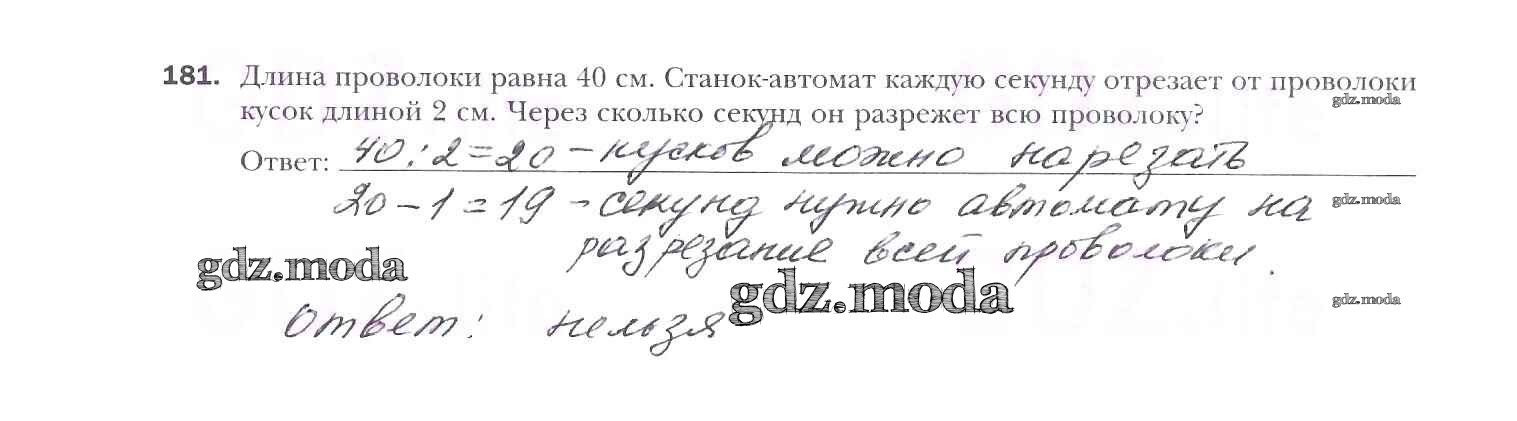 181. Длина проволоки равна 40 см. Станок-автомат каждую секунду отрезает от проволоки
gdz.moda
кусок длиной 2 см. Через сколько секунд он разрежет всю проволоку?
Ответ: 40:2=20 – кусков можно нарезать
20 – 1 = 19 – секунд нужно автомату на
gdz.moda
разрезание всей проволоки.
gdz.moda
gdz.moda
gdz.moda
Ответ: нельзя